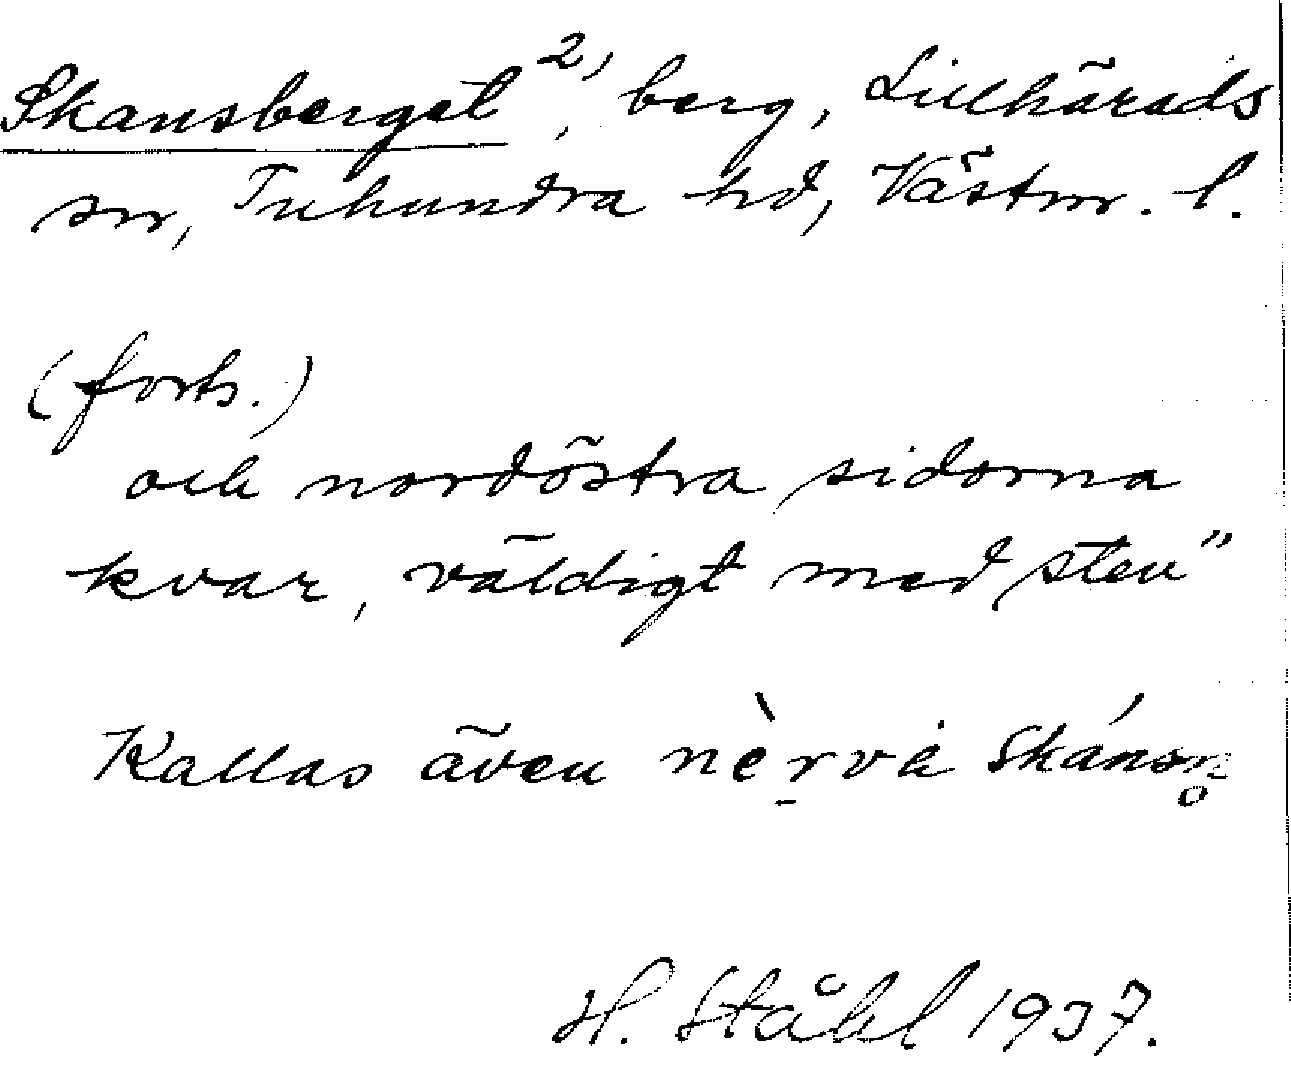 Skansberget 2), berg, Lillhärads
sn, Tuhundra hd, Västm. l.
(forts.)
och nordöstra sidorna
kvar, väldigt med sten"
Kallas även nèrvȧ skánsn̥
H. Ståhl 1937.